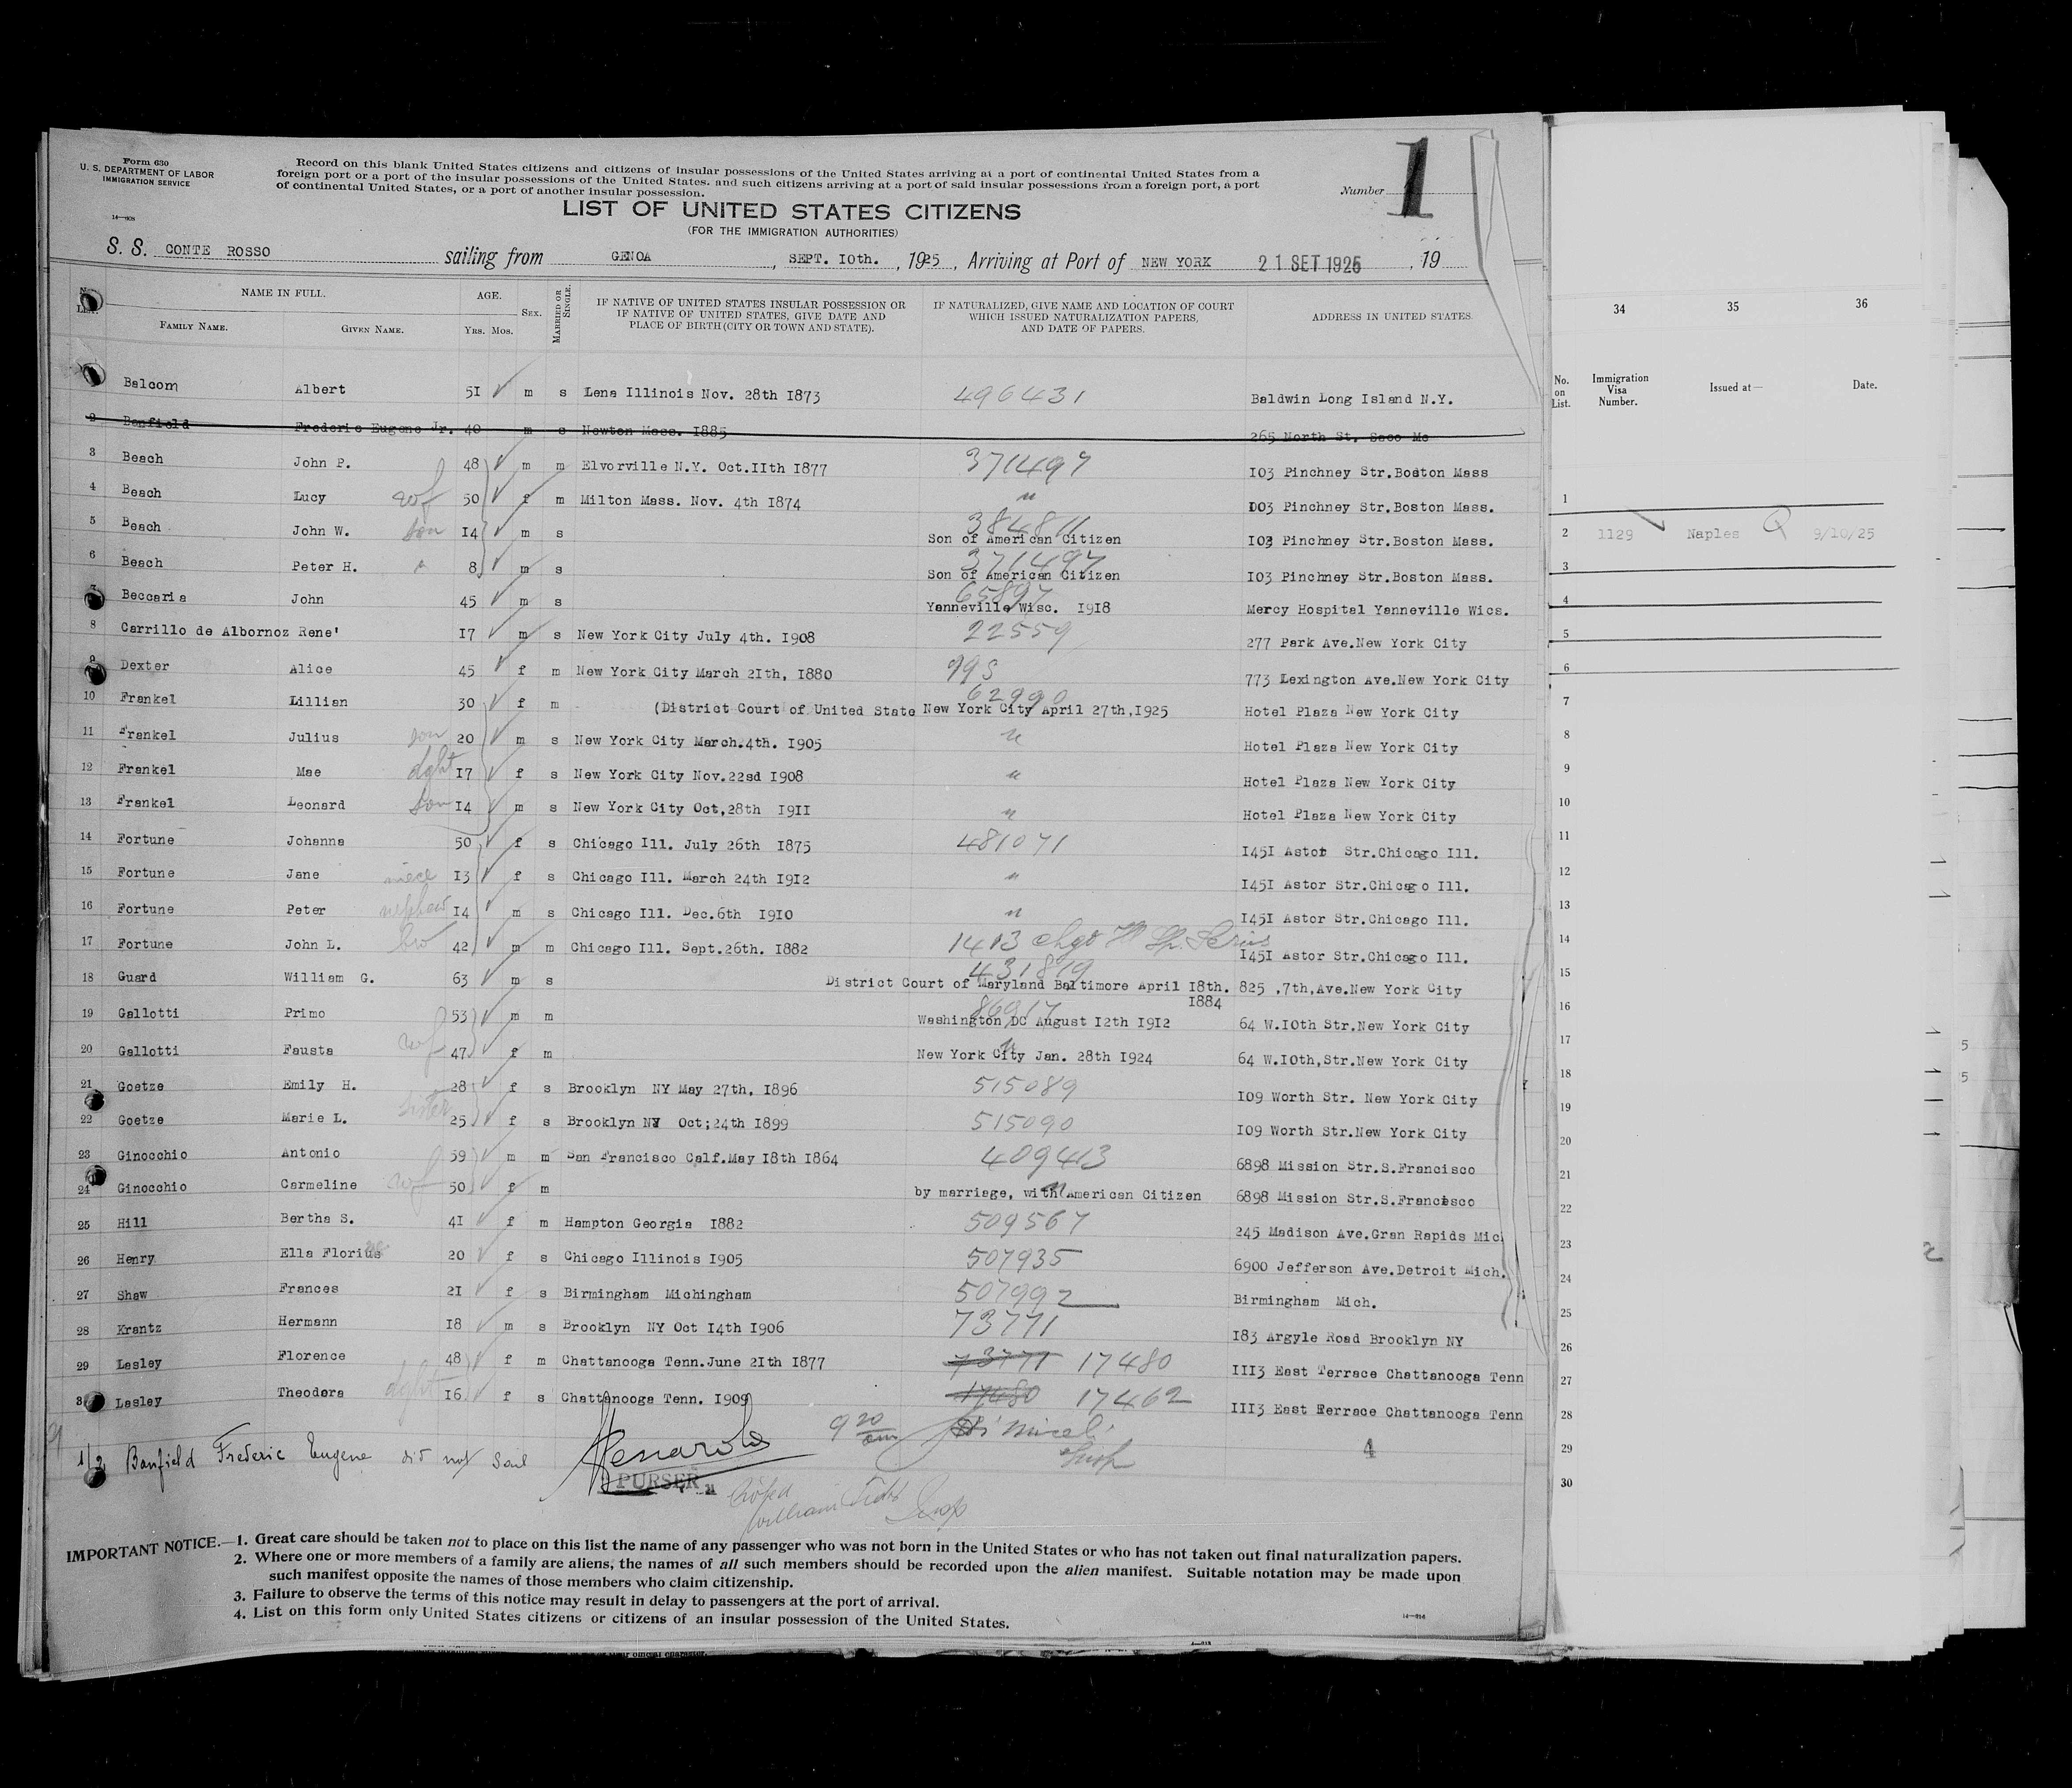 Form 630
U. S. DEPARTMENT OF LABOR
IMMIGRATION SERVICE
14—908
Record on this blank United States citizens and citizens of insular possessions of the United States arriving at a port of continental United States from a
foreign port or a port of the insular possessions of the United States, and such citizens arriving at a port of said insular possessions from a foreign port, a port
of continental United States, or a port of another insular possession.
Number 1
LIST OF UNITED STATES CITIZENS
(FOR THE IMMIGRATION AUTHORITIES)
S. S. CONTE ROSSO sailing from GENOA, SEPT. IOth., 1925, Arriving at Port of NEW YORK 21 SET 1925, 19
NAME IN FULL. AGE. SEX. MARRIED OR SINGLE. IF NATIVE OF UNITED STATES INSULAR POSSESSION OR IF NATIVE OF UNITED STATES, GIVE DATE AND PLACE OF BIRTH (CITY OR TOWN AND STATE). IF NATURALIZED, GIVE NAME AND LOCATION OF COURT WHICH ISSUED NATURALIZATION PAPERS, AND DATE OF PAPERS. ADDRESS IN UNITED STATES.
FAMILY NAME. GIVEN NAME. YRS. MOS.
Balcom Albert 5I m s Lena Illinois Nov. 28th I873 496431 Baldwin Long Island N.Y.
2 Banfield Frederic Eugene Jr. 40 m s Newton Mass. I885 265 North St. Saco Me
3 Beach John P. 48 m m Elvorville N.Y. Oct.IIth I877 371497 I03 Pinchney Str.Boston Mass
4 Beach Lucy wf 50 f m Milton Mass. Nov. 4th I874 " I03 Pinchney Str.Boston Mass.
5 Beach John W. son I4 m s 384811 Son of American Citizen I03 Pinchney Str.Boston Mass.
6 Beach Peter H. " 8 m s 371497 Son of American Citizen I03 Pinchney Str.Boston Mass.
7 Beccaria John 45 m s 65897 Yanneville Wisc. I9I8 Mercy Hospital Yanneville Wics.
8 Carrillo de Albornoz Rene' I7 m s New York City July 4th. I908 22559 277 Park Ave.New York City
9 Dexter Alice 45 f m New York City March 2Ith, I880 993 773 Lexington Ave.New York City
10 Frankel Lillian 30 f m (District Court of United State New York City April 27th,I925 62990 Hotel Plaza New York City
11 Frankel Julius son 20 m s New York City March.4th. I905 " Hotel Plaza New York City
12 Frankel Mae dght I7 f s New York City Nov.22sd I908 " Hotel Plaza New York City
13 Frankel Leonard son I4 m s New York City Oct,28th I9II " Hotel Plaza New York City
14 Fortune Johanna 50 f s Chicago Ill. July 26th I875 481071 I45I Astor Str.Chicago Ill.
15 Fortune Jane niece I3 f s Chicago Ill. March 24th I9I2 " I45I Astor Str.Chicago Ill.
16 Fortune Peter nephew I4 m s Chicago Ill. Dec.6th I9I0 " I45I Astor Str.Chicago Ill.
17 Fortune John L. bro 42 m m Chicago Ill. Sept.26th. I882 1413 Chgo I45I Astor Str.Chicago Ill.
18 Guard William G. 63 m s 431879 District Court of Maryland Baltimore April I8th. I884 825 ,7th,Ave.New York City
19 Gallotti Primo 53 m m 86917 Washington DC August I2th I9I2 64 W.IOth Str.New York City
20 Gallotti Fausta wf 47 f m " New York City Jan. 28th I924 64 W.IOth,Str.New York City
21 Goetze Emily H. 28 f s Brooklyn NY May 27th, I896 515089 I09 Worth Str. New York City
22 Goetze Marie L. sister 25 f s Brooklyn NY Oct;24th I899 515090 I09 Worth Str.New York City
23 Ginocchio Antonio 59 m m San Francisco Calf.May I8th I864 409413 6898 Mission Str.S.Francisco
24 Ginocchio Carmeline wf 50 f m by marriage, with American Citizen " 6898 Mission Str.S.Francisco
25 Hill Bertha S. 4I f m Hampton Georgia I882 509567 245 Madison Ave.Gran Rapids Mic
26 Henry Ella Florius 20 f s Chicago Illinois I905 507935 6900 Jefferson Ave.Detroit Mich.
27 Shaw Frances 2I f s Birmingham Michingham 507992 Birmingham Mich.
28 Krantz Hermann I8 m s Brooklyn NY Oct I4th I906 73771 I83 Argyle Road Brooklyn NY
29 Lasley Florence 48 f m Chattanooga Tenn.June 2Ith I877 73771 17480 III3 East Terrace Chattanooga Tenn
Lasley Theodora dght I6 f s Chattanooga Tenn. I909 17480 17462 III3 East Terrace Chattanooga Tenn
1/2 Banfield Frederic Eugene did not sail
PURSER
9 20 am
4
IMPORTANT NOTICE.—1. Great care should be taken not to place on this list the name of any passenger who was not born in the United States or who has not taken out final naturalization papers.
2. Where one or more members of a family are aliens, the names of all such members should be recorded upon the alien manifest. Suitable notation may be made upon
such manifest opposite the names of those members who claim citizenship.
3. Failure to observe the terms of this notice may result in delay to passengers at the port of arrival.
4. List on this form only United States citizens or citizens of an insular possession of the United States.
14—914
34 35 36
No. on List. Immigration Visa Number. Issued at— Date.
1
2 1129 Naples Q 9/10/25
3
4
5
6
7
8
9
10
11
12
13
14
15
16
17
18
19
20
21
22
23
24
25
26
27
28
29
30